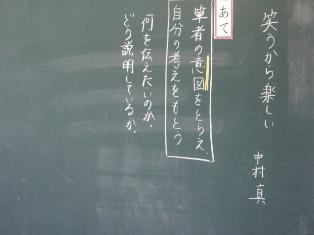 笑うから楽しい
中村真
あて
筆者の意図をとらえ、
自分の考えをもとう
「何を伝えたいのか。
どう説明しているか。